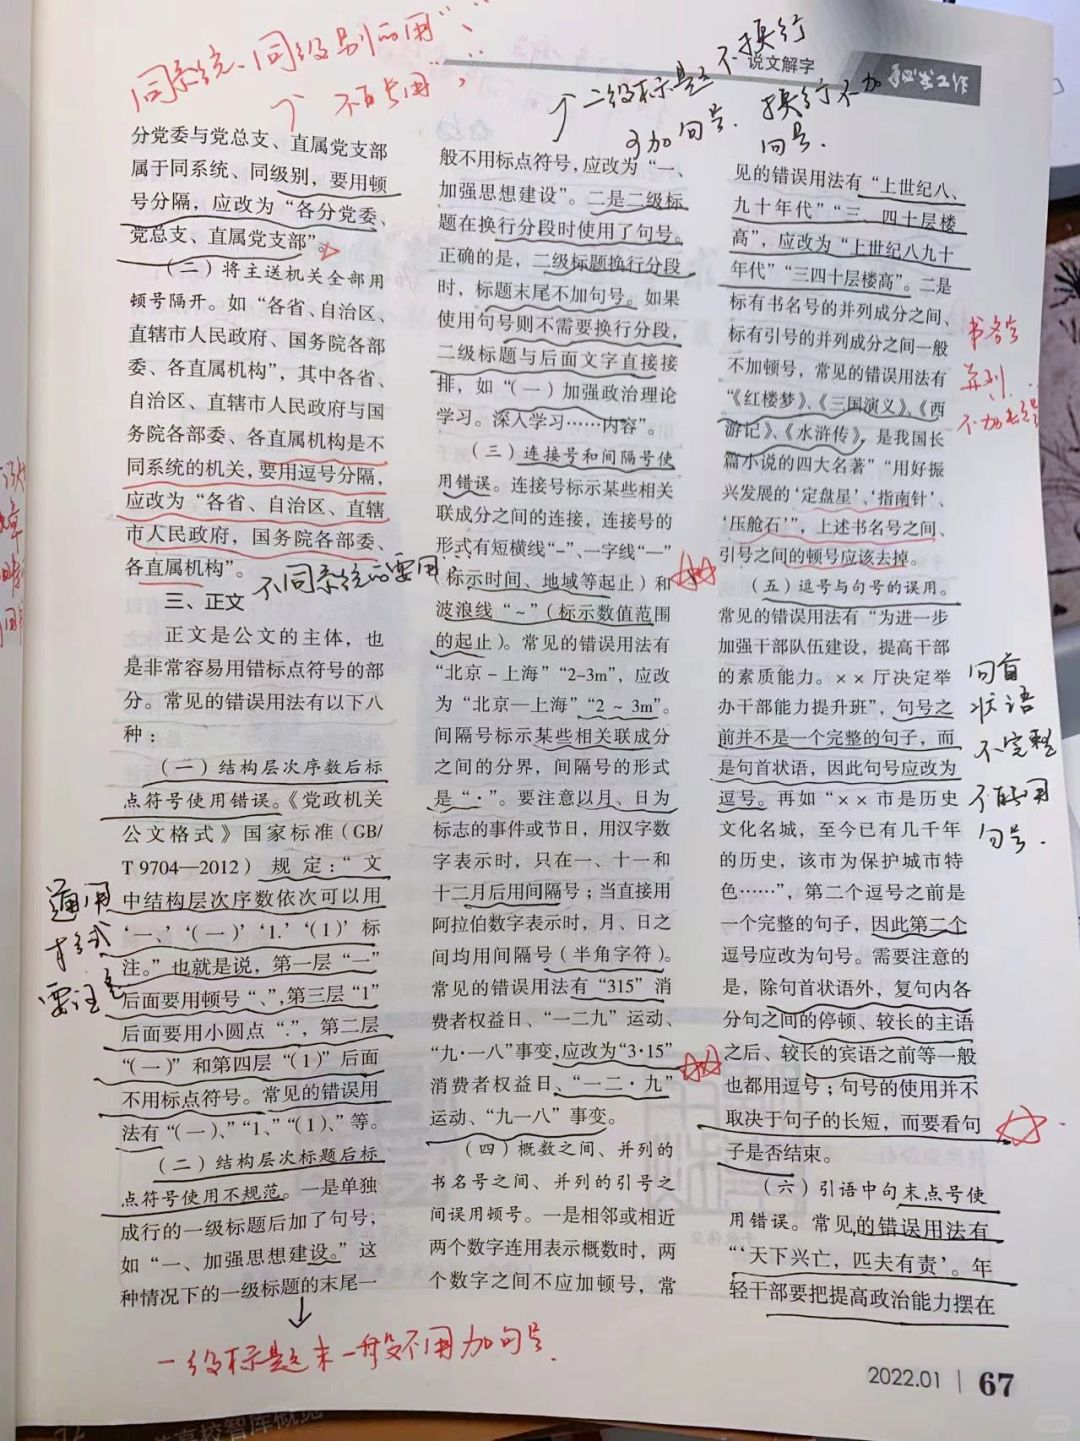 同系统、同级别的用“、”
不可用“，”
个二级标题不换行
可加句号.
换行不加
句号.
说文解字
秘书工作
分党委与党总支、直属党支部
属于同系统、同级别，要用顿
号分隔，应改为“各分党委、
党总支、直属党支部”。
（二）将主送机关全部用
顿号隔开。如“各省、自治区、
直辖市人民政府、国务院各部
委、各直属机构”，其中各省、
自治区、直辖市人民政府与国
务院各部委、各直属机构是不
同系统的机关，要用逗号分隔，
应改为“各省、自治区、直辖
市人民政府，国务院各部委、
各直属机构”。
不同系统的要用，
三、正文
正文是公文的主体，也
是非常容易用错标点符号的部
分。常见的错误用法有以下八
种：
（一）结构层次序数后标
点符号使用错误。《党政机关
公文格式》国家标准（GB/
T 9704—2012）规定：“文
中结构层次序数依次可以用
‘一、’‘（一）’‘1.’‘（1）’标
注。”也就是说，第一层“一”
后面要用顿号“、”，第三层“1”
后面要用小圆点“.”，第二层
“（一）”和第四层“（1）”后面
不用标点符号。常见的错误用
法有“（一）、”“1、”“（1）、”等。
（二）结构层次标题后标
点符号使用不规范。一是单独
成行的一级标题后加了句号，
如“一、加强思想建设。”这
种情况下的一级标题的末尾一
通用
格式
要注意
一级标题末一般不用加句号.
般不用标点符号，应改为“一、
加强思想建设”。二是二级标
题在换行分段时使用了句号。
正确的是，二级标题换行分段
时，标题末尾不加句号。如果
使用句号则不需要换行分段，
二级标题与后面文字直接接
排，如“（一）加强政治理论
学习。深入学习……内容”。
（三）连接号和间隔号使
用错误。连接号标示某些相关
联成分之间的连接，连接号的
形式有短横线“-”、一字线“—”
（标示时间、地域等起止）和
波浪线“~”（标示数值范围
的起止）。常见的错误用法有
“北京－上海”“2-3m”，应改
为“北京—上海”“2 ~ 3m”。
间隔号标示某些相关联成分
之间的分界，间隔号的形式
是“·”。要注意以月、日为
标志的事件或节日，用汉字数
字表示时，只在一、十一和
十二月后用间隔号；当直接用
阿拉伯数字表示时，月、日之
间均用间隔号（半角字符）。
常见的错误用法有“315”消
费者权益日、“一二九”运动、
“九·一八”事变，应改为“3·15”
消费者权益日、“一二·九”
运动、“九一八”事变。
（四）概数之间、并列的
书名号之间、并列的引号之
间误用顿号。一是相邻或相近
两个数字连用表示概数时，两
个数字之间不应加顿号，常
见的错误用法有“上世纪八、
九十年代”“三、四十层楼
高”，应改为“上世纪八九十
年代”“三四十层楼高”。二是
标有书名号的并列成分之间、
标有引号的并列成分之间一般
不加顿号，常见的错误用法有
“《红楼梦》、《三国演义》、《西
游记》、《水浒传》，是我国长
篇小说的四大名著”“用好振
兴发展的‘定盘星’、‘指南针’、
‘压舱石’”，上述书名号之间、
引号之间的顿号应该去掉。
（五）逗号与句号的误用。
常见的错误用法有“为进一步
加强干部队伍建设，提高干部
的素质能力。××厅决定举
办干部能力提升班”，句号之
前并不是一个完整的句子，而
是句首状语，因此句号应改为
逗号。再如“××市是历史
文化名城，至今已有几千年
的历史，该市为保护城市特
色……”，第二个逗号之前是
一个完整的句子，因此第二个
逗号应改为句号。需要注意的
是，除句首状语外，复句内各
分句之间的停顿、较长的主语
之后、较长的宾语之前等一般
也都用逗号；句号的使用并不
取决于句子的长短，而要看句
子是否结束。
（六）引语中句末点号使
用错误。常见的错误用法有
“‘天下兴亡，匹夫有责’。年
轻干部要把提高政治能力摆在
书名号
并列
不加顿号
句首
状语
不完整
不能用
句号.
2022.01 | 67
高校智库概览